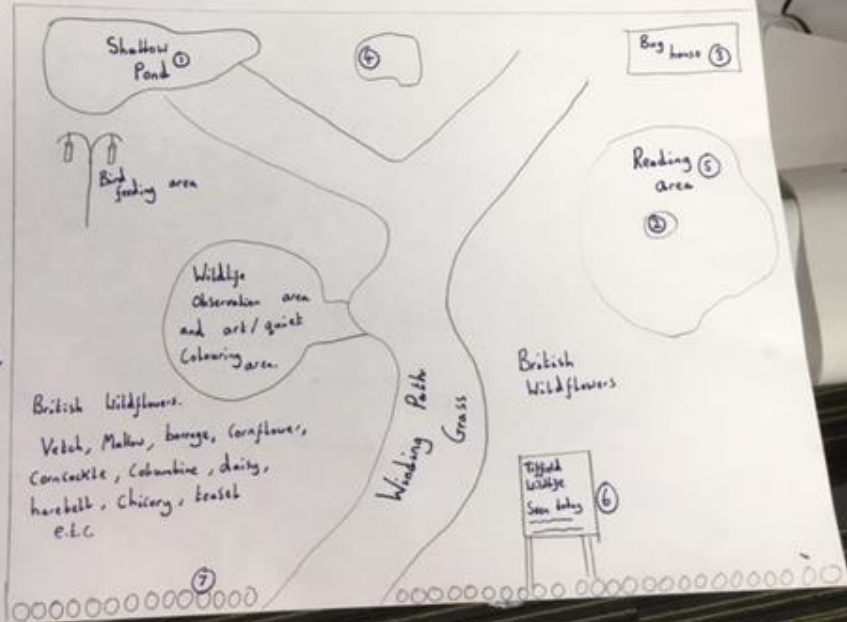 Shallow ①
Pond
④
Bug
house ③
Bird
feeding area
Reading ⑤
area
②
Wildlife
Observation area
and art/quiet
Colouring area.
British Wildflowers.
Vetch, Mallow, borrage, Cornflower,
Corncockle, Columbine, daisy,
harebell, Chicory, teasel
e.t.c
Winding Path
Grass
British
Wildflowers
Tiffield
Wildlife
Seen today
⑥
⑦